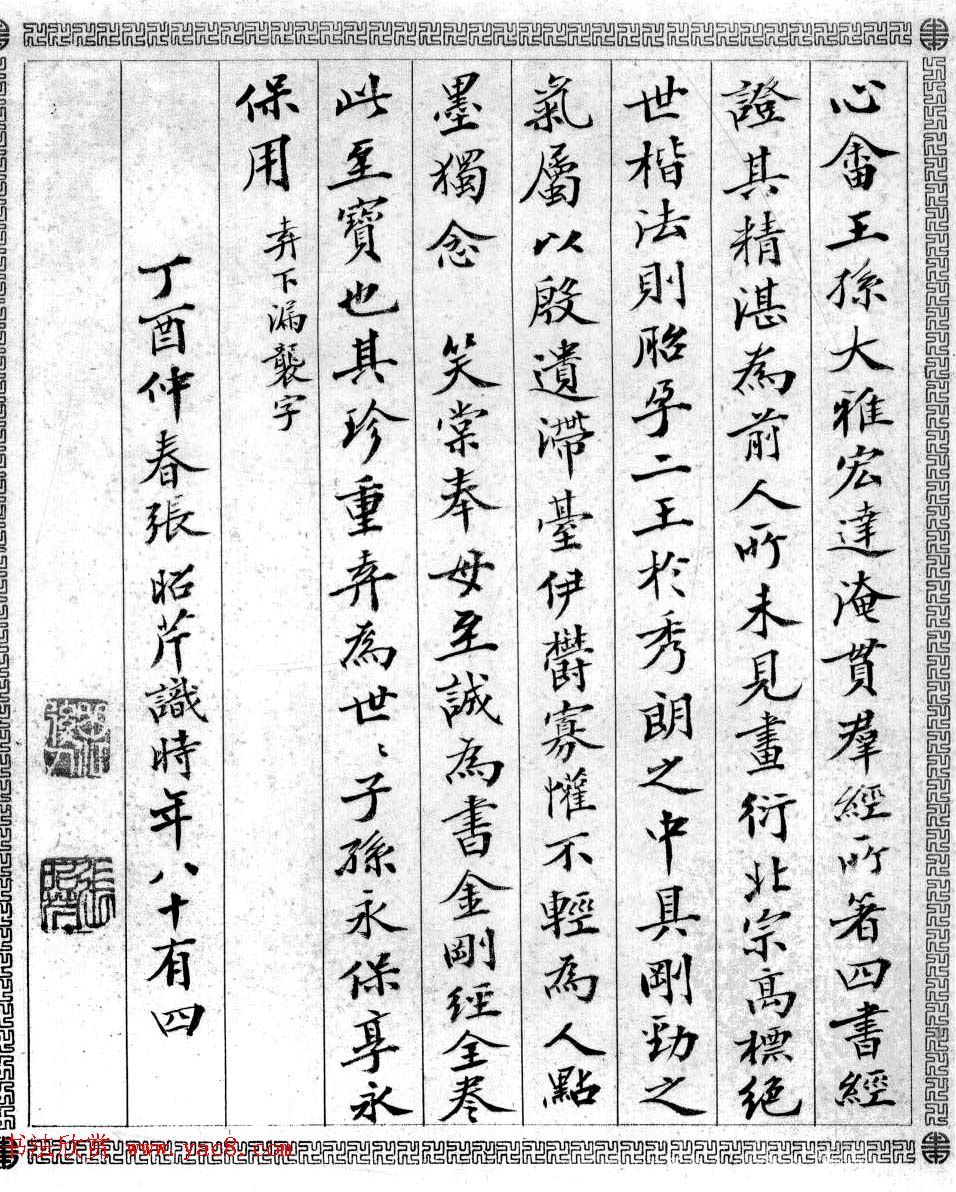 心畬王孫大雅宏達淹貫羣經所著四書經
證其精湛為前人所未見畫衍北宗高標絕
世楷法則胎孕二王於秀朗之中具剛勁之
氣屬以殷遺滯臺伊鬱寡懽不輕為人點
墨獨念 笑棠奉母至誠為書金剛經全卷
此至寶也其珍重弆為世〻子孫永保享永
保用 弆下漏襲字
丁酉仲春張昭芹識時年八十有四
張昭芹
书法欣赏 www.yac8.com